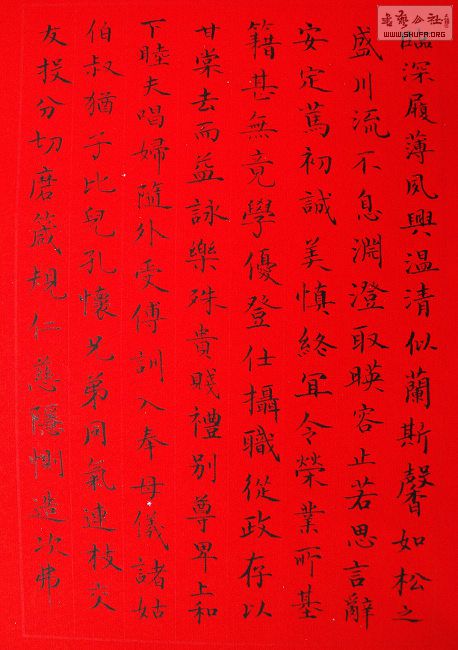 臨深履薄夙興温清似蘭斯馨如松之
盛川流不息淵澄取暎容止若思言辭
安定篤初誠美慎終宜令榮業所基
籍甚無竟學優登仕攝職從政存以
甘棠去而益詠樂殊貴賤禮別尊卑上和
下睦夫唱婦隨外受傅訓入奉母儀諸姑
伯叔猶子比兒孔懷兄弟同氣連枝交
友投分切磨箴規仁慈隱惻造次弗
WWW.SHUFA.ORG